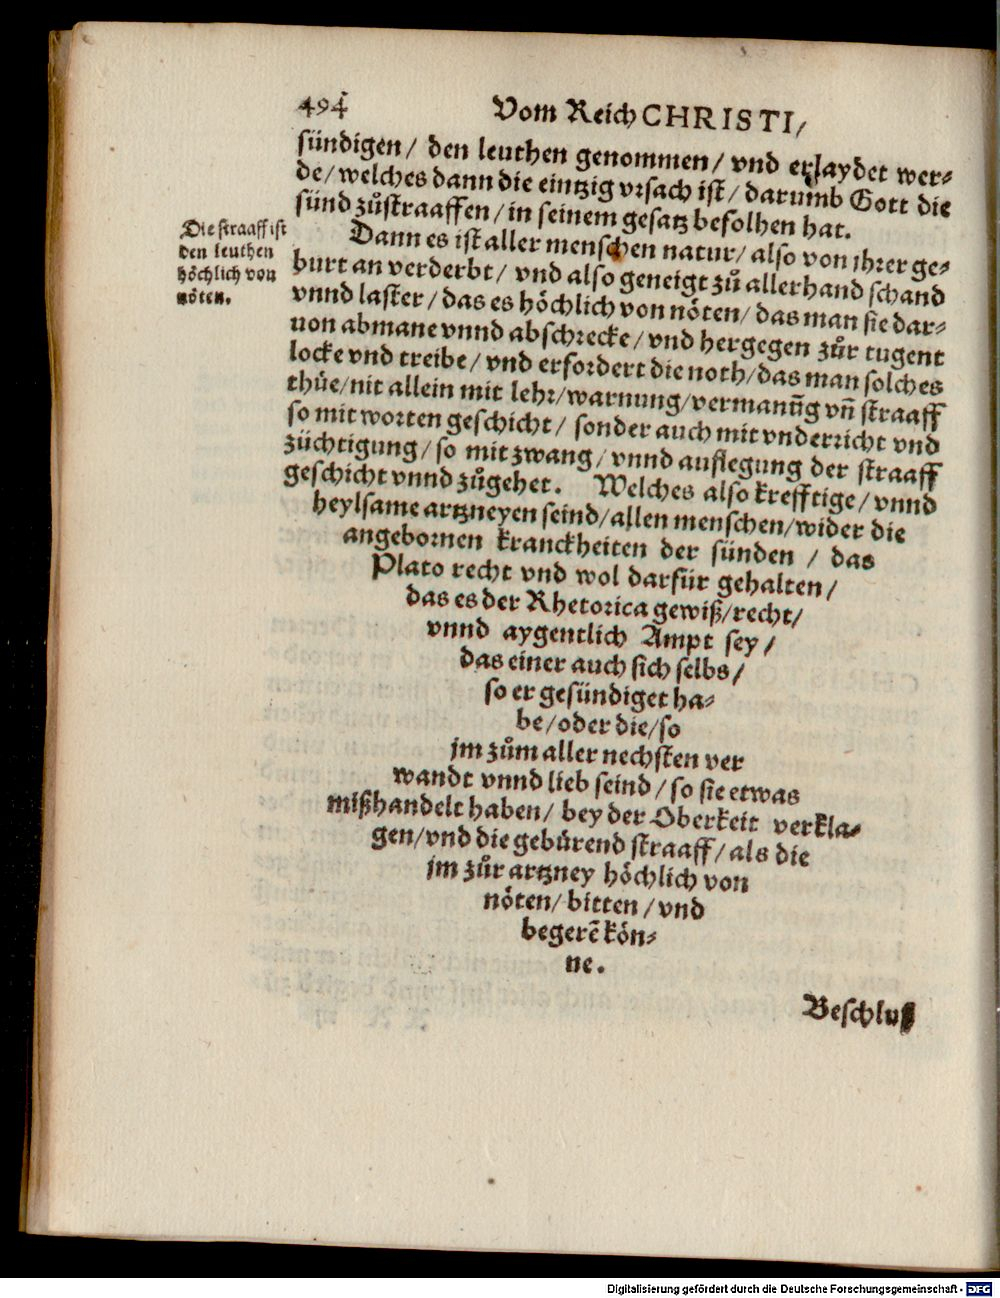 494
Vom Reich CHRISTI/
sündigen/ den leuthen genommen/ vnd erlaydet wer-
de/ welches dann die eintzig vrsach ist/ darumb Gott die
sünd zůstraaffen/ in seinem gesatz befolhen hat.
Die straaff ist
den leuthen
höchlich von
nöten.
Dann es ist aller menschen natur/ also von ihrer ge-
burt an verderbt/ vnd also geneigt zů allerhand schand
vnnd laster/ das es höchlich von nöten/ das man sie dar-
uon abmane vnnd abschrecke/ vnd hergegen zůr tugent
locke vnd treibe/ vnd erfordert die noth/ das man solches
thůe/ nit allein mit lehr/ warnung/ vermanũg vñ straaff
so mit worten geschicht/ sonder auch mit vnderricht vnd
züchtigung/ so mit zwang/ vnnd auflegung der straaff
geschicht vnnd zůgehet. Welches also krefftige/ vnnd
heylsame artzneyen seind/ allen menschen/ wider die
angebornen kranckheiten der sünden / das
Plato recht vnd wol darfür gehalten/
das es der Rhetorica gewiß/ recht/
vnnd aygentlich Ampt sey/
das einer auch sich selbs/
so er gesündiget ha-
be/ oder die/ so
jm zům aller nechsten ver
wandt vnnd lieb seind/ so sie etwas
mißhandelt haben/ bey der Oberkeit verkla-
gen/ vnd die gebürend straaff/ als die
jm zůr artzney höchlich von
nöten/ bitten/ vnd
begerẽ kön-
ne.
Beschluß
Digitalisierung gefördert durch die Deutsche Forschungsgemeinschaft - DFG